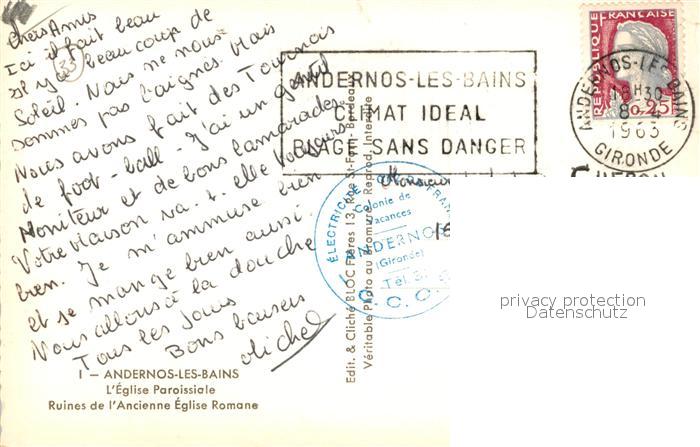 Chers Amis
Ici il fait beau
Il y a beaucoup de
Soleil. Nous ne nous
sommes pas baignés. Mais
Nous avons fait des Tournois
de foot-ball. J'ai un gentil
Moniteur et de bons camarades
Votre maison va-t-elle toujours
bien. Je m'ammuse bien
et se mange bien aussi.
Nous allons à la douche
Tous les jours
Bons baisers
Michel
33
I — ANDERNOS-LES-BAINS
L'Église Paroissiale
Ruines de l'Ancienne Église Romane
Edit. & Cliché BLOC Frères 13, Rue St-Ferm. Bordeaux
Véritable Photo au Bromure - Reprod. Interdite
ANDERNOS-LES-BAINS
CLIMAT IDEAL
PLAGE SANS DANGER
REPUBLIQUE FRANÇAISE
0,25
ANDERNOS-LES-BAINS
8-4
1963
GIRONDE
Monsieur
ÉLECTRICITÉ
FRAN
Colonie de
Vacances
ANDERNO
(Gironde)
Tél. 3
C.C.O
privacy protection
Datenschutz